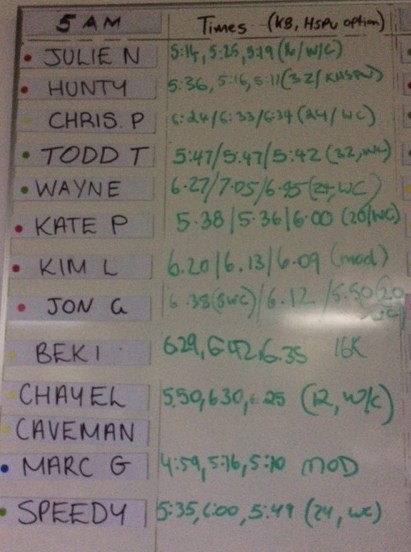 5 AM Times (KB, HSPU option)
JULIE N 5:14, 5:25, 5:19 (16/W/C)
HUNTY 5:36, 5:16, 5:11 (32/
CHRIS. P 6:24/6:33/6:34 (24/WC)
TODD T 5:47/5:47/5:42 (32, WC)
WAYNE 6.27/7.05/6.45 (24, WC)
KATE P 5.38/5.36/6.00 (20/WC)
KIM L 6.20/6.13/6.09 (mod)
JON G 6.38(SWC)/6.12/5.50 (20
BEKI 629, 6.35 16K
CHAYEL 5.50, 630, 6.25 (12, W/C)
CAVEMAN
MARC G 4:59, 5:16, 5:10 MOD
SPEEDY 5:35, 6:00, 5:49 (24, WC)